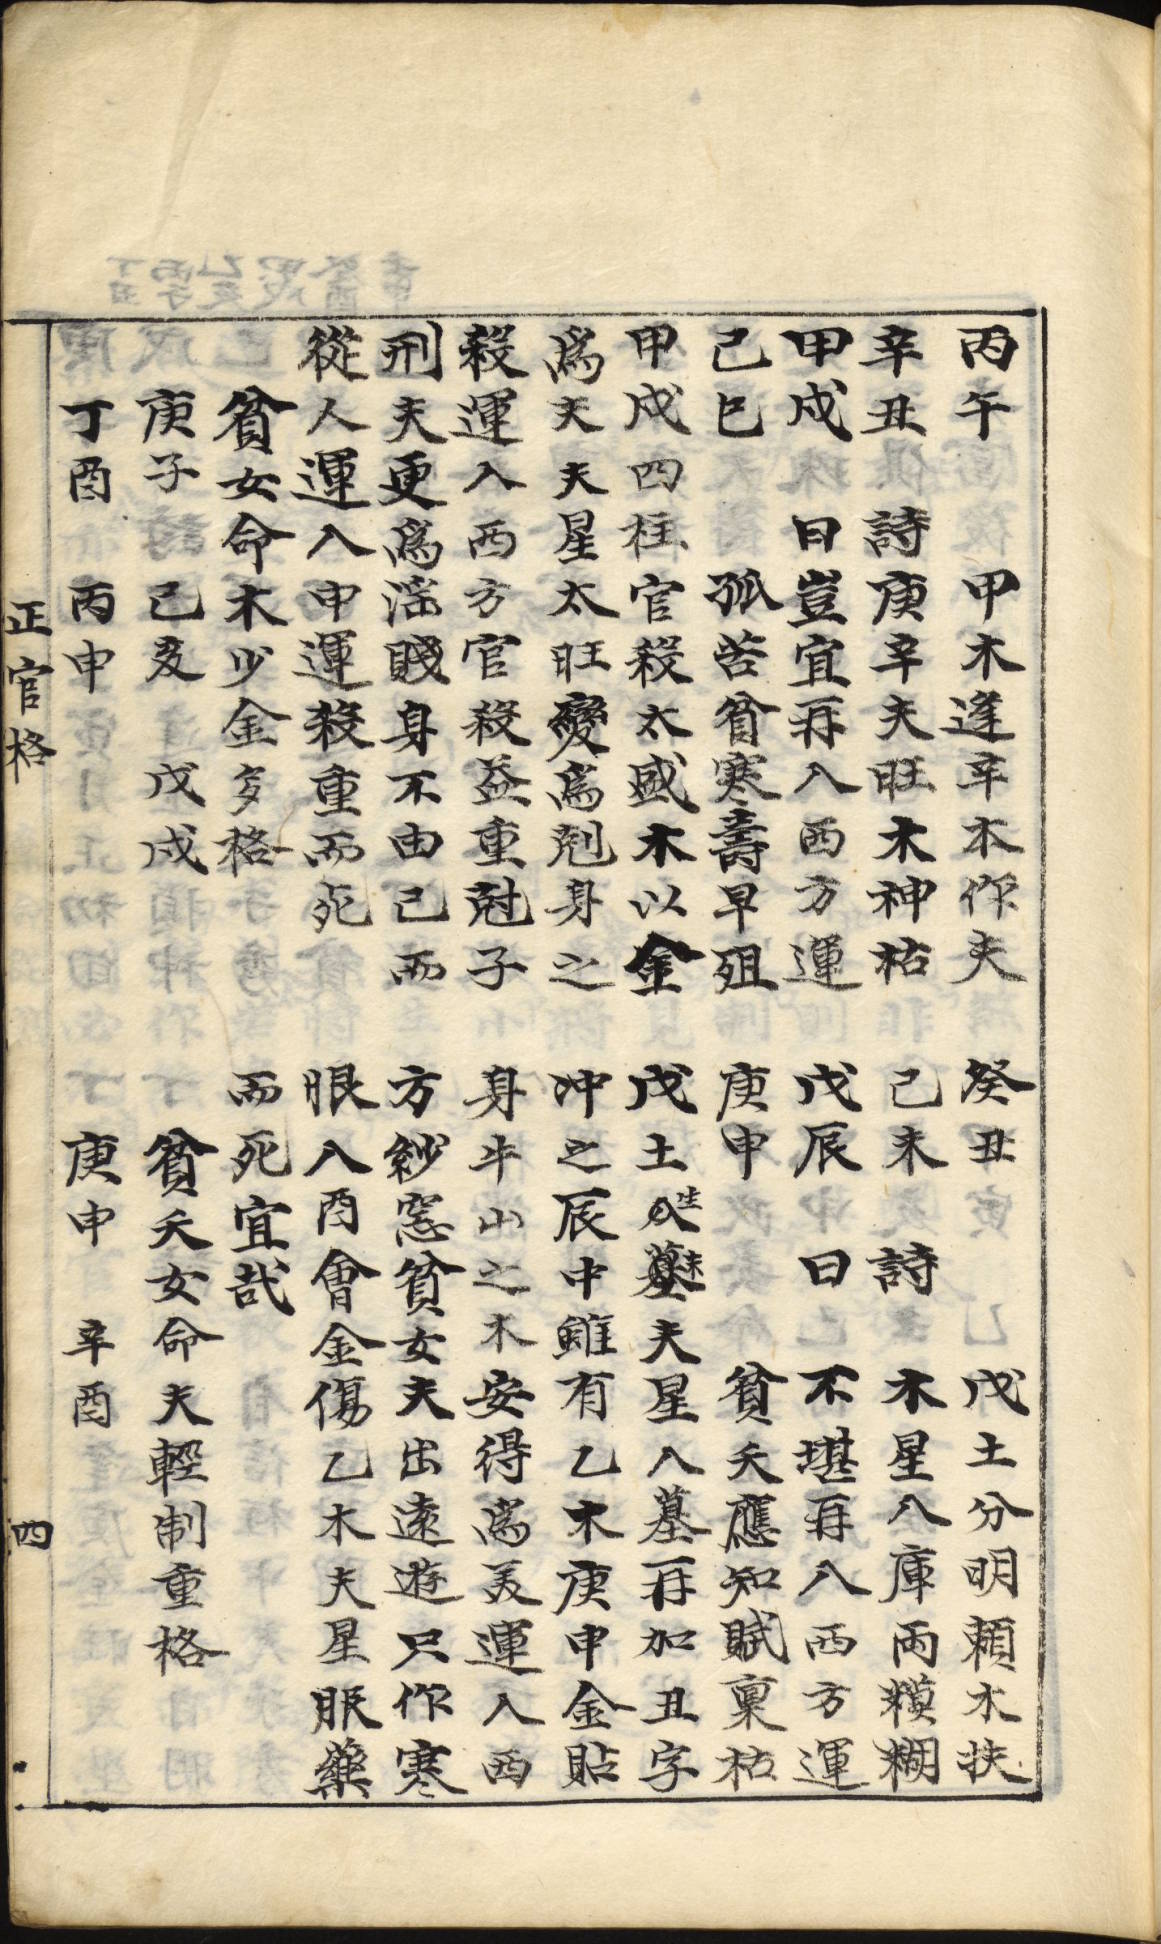 丙午　甲木逢辛本作夫
辛丑　詩庚辛夫旺木神枯
甲戌　曰豈宜再入西方運
己巳　孤苦貧寒壽早殂
甲戌四柱官殺太盛木以金
為夫夫星太旺變為剋身之
殺運入西方官殺益重尅子
刑夫更為淫賤身不由己而
從人運入申運殺重而死
貧女命木少金多格
庚子　己亥　戊戌
丁酉　丙申
癸丑　戊土分明賴木扶
己未　詩　木星入庫兩糢糊
戊辰　曰　不堪再入西方運
庚申　貧夭應知賦稟枯
戊土生未夫星入墓再加丑字
冲之辰中雖有乙木庚申金貼
身牛山之木安得為美運入西
方紗窓貧女夫出遠遊只作寒
眼入酉會金傷乙木夫星服藥
而死宜哉
貧夭女命夫輕制重格
庚申　辛酉
正官格　四